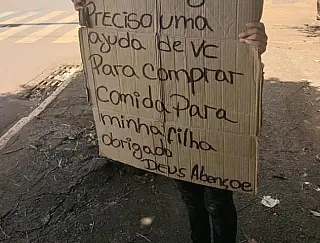 Preciso uma
ayuda de vc
Para comprar
comida Para
minha filha
obrigado
Deus Abençoe